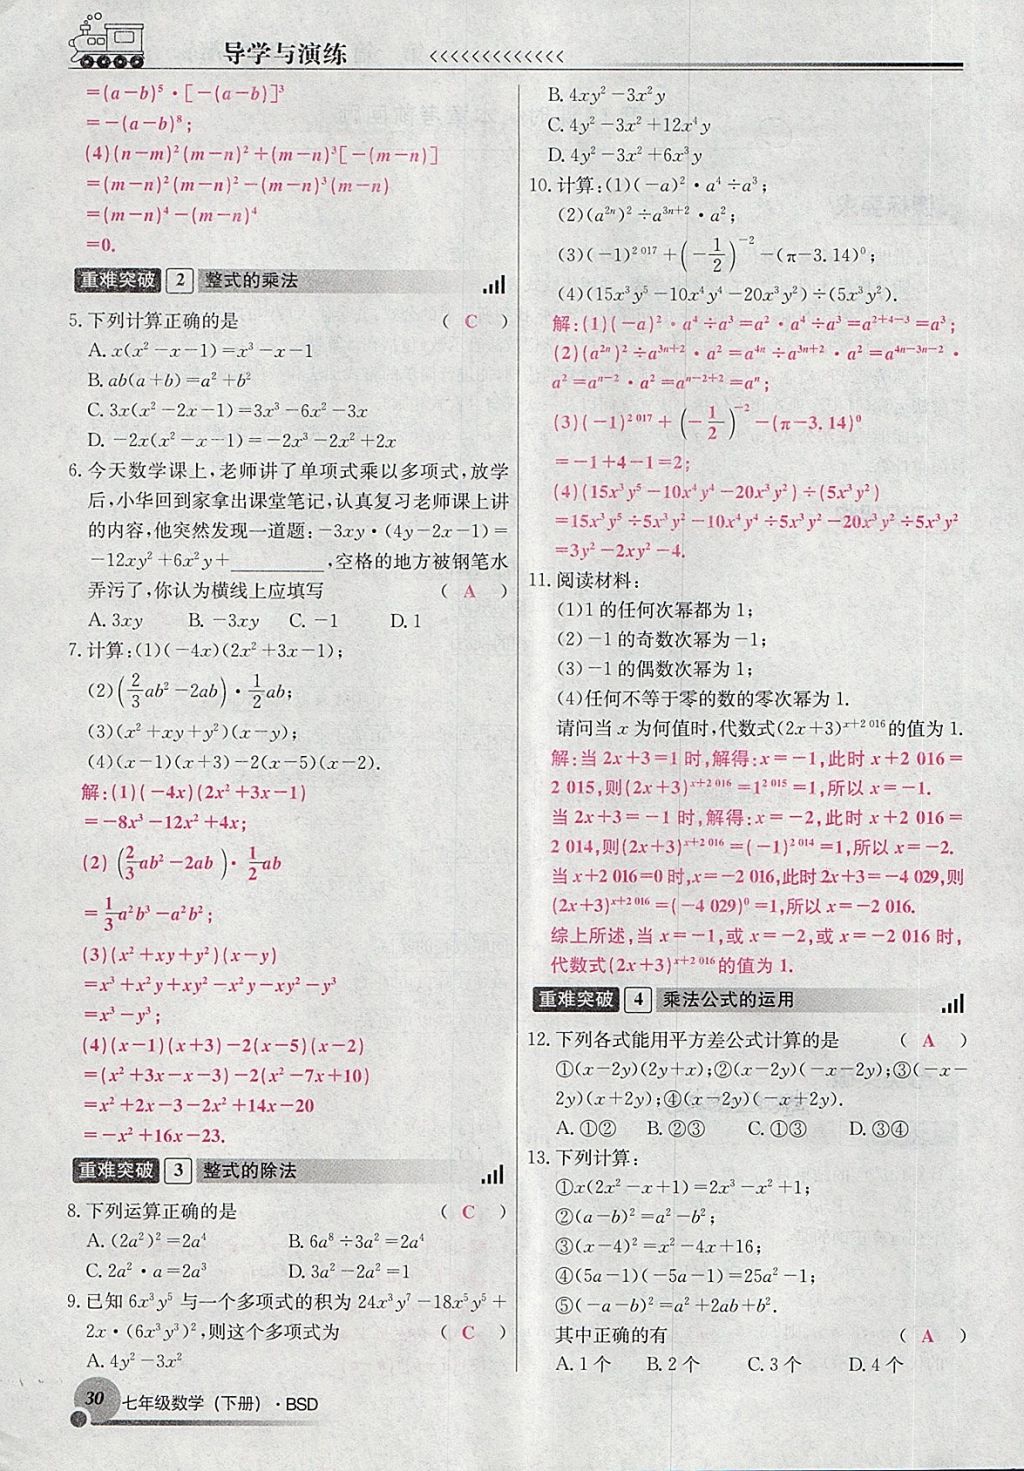 导学与演练
=(a-b)⁵·[-(a-b)]³
=-(a-b)⁸;
(4)(n-m)²(m-n)²+(m-n)³[-(m-n)]
=(m-n)²(m-n)²-(m-n)³(m-n)
=(m-n)⁴-(m-n)⁴
=0.
重难突破 2 整式的乘法
5.下列计算正确的是 ( C )
A.x(x²-x-1)=x³-x-1
B.ab(a+b)=a²+b²
C.3x(x²-2x-1)=3x³-6x²-3x
D.-2x(x²-x-1)=-2x³-2x²+2x
6.今天数学课上,老师讲了单项式乘以多项式,放学
后,小华回到家拿出课堂笔记,认真复习老师课上讲
的内容,他突然发现一道题:-3xy·(4y-2x-1)=
-12xy²+6x²y+________,空格的地方被钢笔水
弄污了,你认为横线上应填写 ( A )
A.3xy B.-3xy C.-1 D.1
7.计算:(1)(-4x)(2x²+3x-1);
(2)(2/3ab²-2ab)·1/2ab;
(3)(x²+xy+y²)(x-y);
(4)(x-1)(x+3)-2(x-5)(x-2).
解:(1)(-4x)(2x²+3x-1)
=-8x³-12x²+4x;
(2)(2/3ab²-2ab)·1/2ab
=1/3a²b³-a²b²;
(3)(x²+xy+y²)(x-y)
=x³+x²y+xy²-x²y-xy²-y³
=x³-y³;
(4)(x-1)(x+3)-2(x-5)(x-2)
=(x²+3x-x-3)-2(x²-7x+10)
=x²+2x-3-2x²+14x-20
=-x²+16x-23.
重难突破 3 整式的除法
8.下列运算正确的是 ( C )
A.(2a²)²=2a⁴ B.6a⁸÷3a²=2a⁴
C.2a²·a=2a³ D.3a²-2a²=1
9.已知6x³y⁵与一个多项式的积为24x³y⁷-18x⁵y⁵+
2x·(6x³y³)²,则这个多项式为 ( C )
A.4y²-3x²
B.4xy²-3x²y
C.4y²-3x²+12x⁴y
D.4y²-3x²+6x³y
10.计算:(1)(-a)²·a⁴÷a³;
(2)(a²ⁿ)²÷a³ⁿ⁺²·a²;
(3)(-1)²⁰¹⁷+(-1/2)⁻²-(π-3.14)⁰;
(4)(15x³y⁵-10x⁴y⁴-20x³y²)÷(5x³y²).
解:(1)(-a)²·a⁴÷a³=a²·a⁴÷a³=a²⁺⁴⁻³=a³;
(2)(a²ⁿ)²÷a³ⁿ⁺²·a²=a⁴ⁿ÷a³ⁿ⁺²·a²=a⁴ⁿ⁻³ⁿ⁻²·
a²=aⁿ⁻²·a²=aⁿ⁻²⁺²=aⁿ;
(3)(-1)²⁰¹⁷+(-1/2)⁻²-(π-3.14)⁰
=-1+4-1=2;
(4)(15x³y⁵-10x⁴y⁴-20x³y²)÷(5x³y²)
=15x³y⁵÷5x³y²-10x⁴y⁴÷5x³y²-20x³y²÷5x³y²
=3y³-2xy²-4.
11.阅读材料:
(1)1的任何次幂都为1;
(2)-1的奇数次幂为-1;
(3)-1的偶数次幂为1;
(4)任何不等于零的数的零次幂为1.
请问当x为何值时,代数式(2x+3)ˣ⁺²⁰¹⁶的值为1.
解:当2x+3=1时,解得:x=-1,此时x+2 016=
2 015,则(2x+3)ˣ⁺²⁰¹⁶=1²⁰¹⁵=1,所以x=-1.
当2x+3=-1时,解得:x=-2,此时x+2 016=
2 014,则(2x+3)ˣ⁺²⁰¹⁶=(-1)²⁰¹⁴=1,所以x=-2.
当x+2 016=0时,x=-2 016,此时2x+3=-4 029,则
(2x+3)ˣ⁺²⁰¹⁶=(-4 029)⁰=1,所以x=-2 016.
综上所述,当x=-1,或x=-2,或x=-2 016时,
代数式(2x+3)ˣ⁺²⁰¹⁶的值为1.
重难突破 4 乘法公式的运用
12.下列各式能用平方差公式计算的是 ( A )
①(x-2y)(2y+x);②(x-2y)(-x-2y);③(-x-
2y)(x+2y);④(x-2y)(-x+2y).
A.①② B.②③ C.①③ D.③④
13.下列计算:
①x(2x²-x+1)=2x³-x²+1;
②(a-b)²=a²-b²;
③(x-4)²=x²-4x+16;
④(5a-1)(-5a-1)=25a²-1;
⑤(-a-b)²=a²+2ab+b².
其中正确的有 ( A )
A.1个 B.2个 C.3个 D.4个
30 七年级数学(下册)·BSD